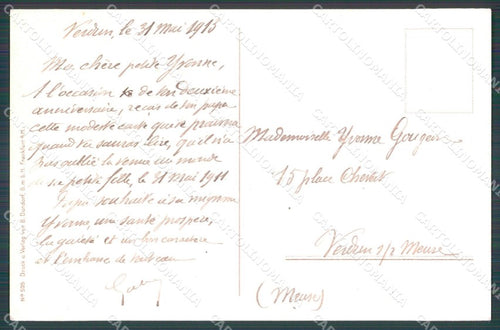 Verdun, le 31 Mai 1913
Ma chère petite Yvonne,
A l'occasion de ton deuxième
anniversaire, reçois de ton papa
cette modeste carte qui te prouvera
quand tu sauras lire, qu'il n'a
pas oublié la venue au monde
de sa petite fille, le 31 Mai 1911
qui souhaite à sa mignonne
Yvonne, une santé prospère,
la gaieté et un bon
et l'embrasse
Mademoiselle Yvonne
15 place Chevert
Verdun s/ Meuse
(Meuse)
Druck u. Verlag von B. Dondorf, G.m.b.H., Frankfurt a/M.
CARTOLINOMANIA